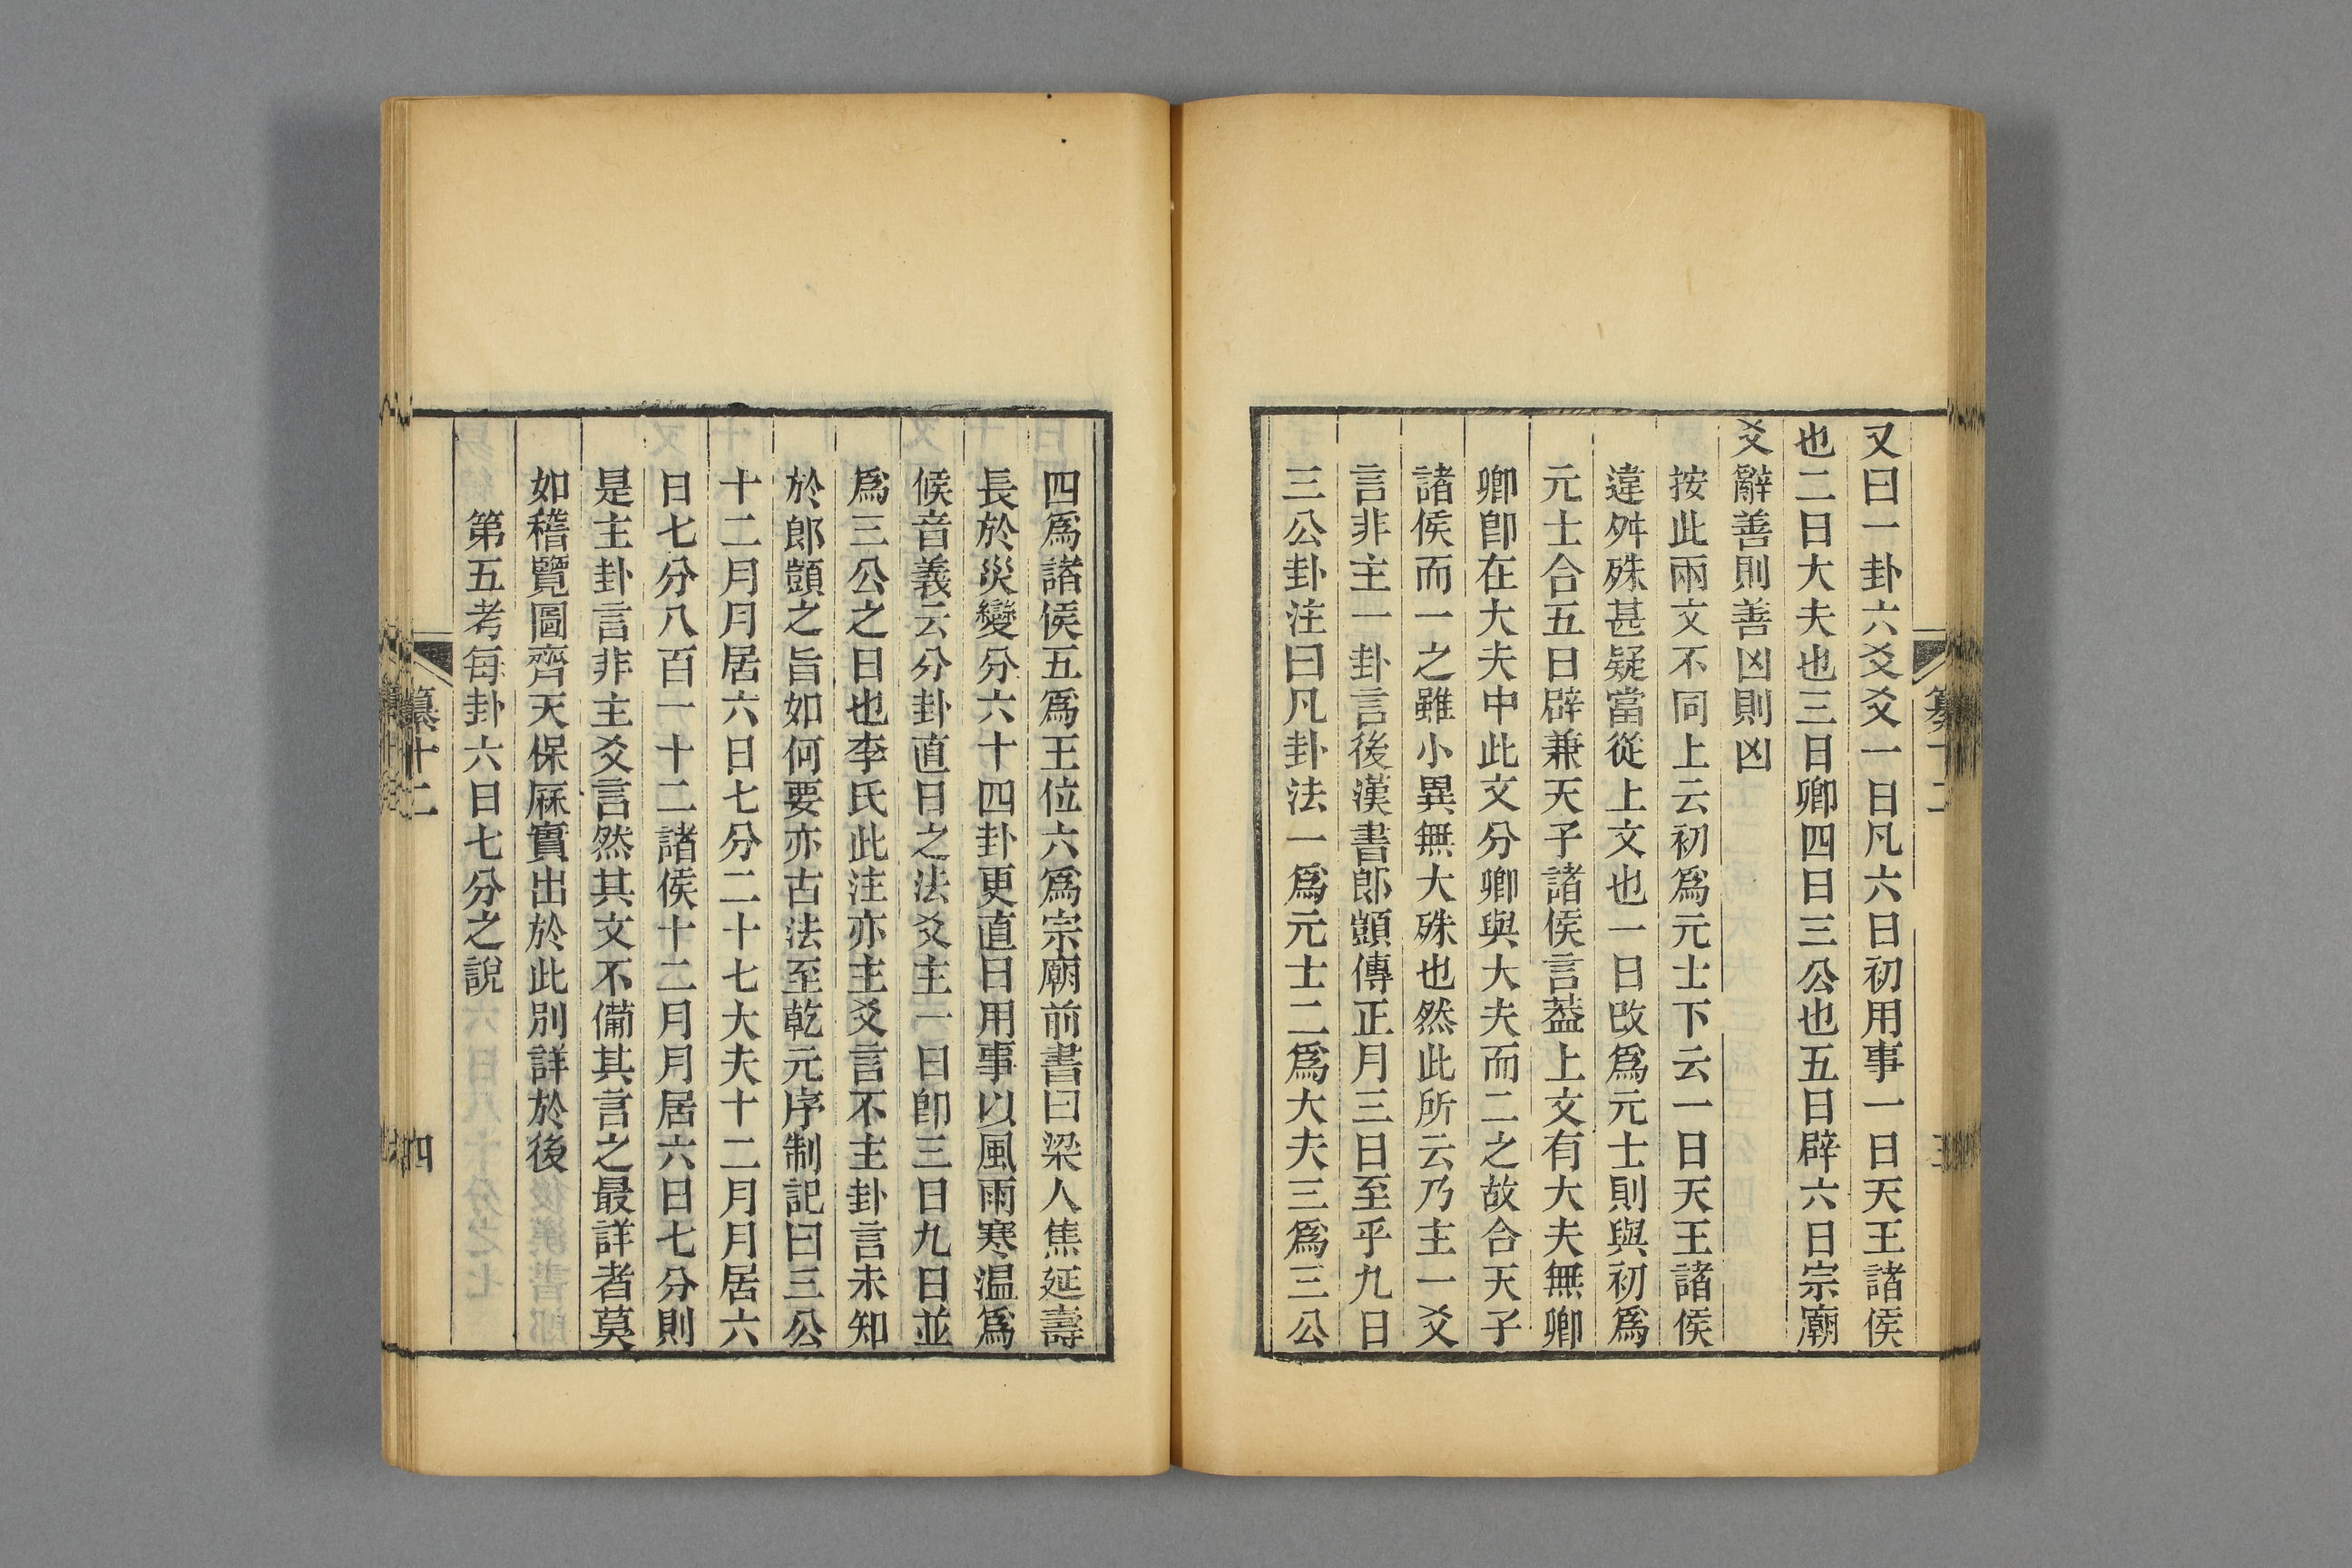 又曰一卦六爻爻一日凡六日初用事一日天王諸侯
也二日大夫也三日卿四日三公也五日辟六日宗廟
爻辭善則善凶則凶
按此兩文不同上云初爲元士下云一日天王諸侯
違舛殊甚疑當從上文也一日改爲元士則與初爲
元士合五日辟兼天子諸侯言葢上文有大夫無卿
卿卽在大夫中此文分卿與大夫而二之故合天子
諸侯而一之雖小異無大殊也然此所云乃主一爻
言非主一卦言後漢書郎顗傳正月三日至乎九日
三公卦注曰凡卦法一爲元士二爲大夫三爲三公
四爲諸侯五爲王位六爲宗廟前書曰梁人焦延壽
長於災變分六十四卦更直日用事以風雨寒温爲
候音義云分卦直日之法爻主一日卽三日九日並
爲三公之日也李氏此注亦主爻言不主卦言未知
於郎顗之旨如何要亦古法至乾元序制記曰三公
十二月月居六日七分二十七大夫十二月月居六
日七分八百一十二諸侯十二月月居六日七分則
是主卦言非主爻言然其文不備其言之最詳者莫
如稽覽圖齊天保厤實出於此別詳於後
第五考每卦六日七分之說
纂十二
四